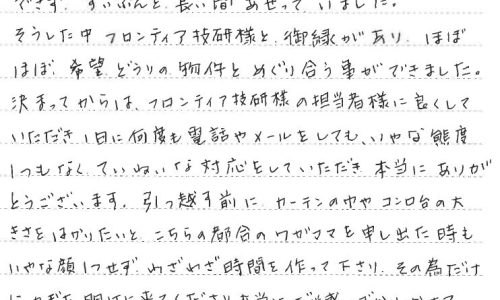 できず、ずいぶんと長い間あせって いました。
そうした中 フロンティア技研様と、御縁があり、ほぼ
ほぼ 希望どうりの物件と めぐり合う事ができました。
決まってからは、フロンティア技研様の担当者様に良くして
いただき 1日に何度も電話やメールをしても、いやな態度
1つもなく ていねいな対応をしていただき 本当に ありが
とうございます。引っ越す前に カーテンの巾や コンロ台の大
きさを はかりたいと、こちらの都合のワガママを申し出た時も
いやな顔1つせず わざわざ時間を作って下さり、その為だけ